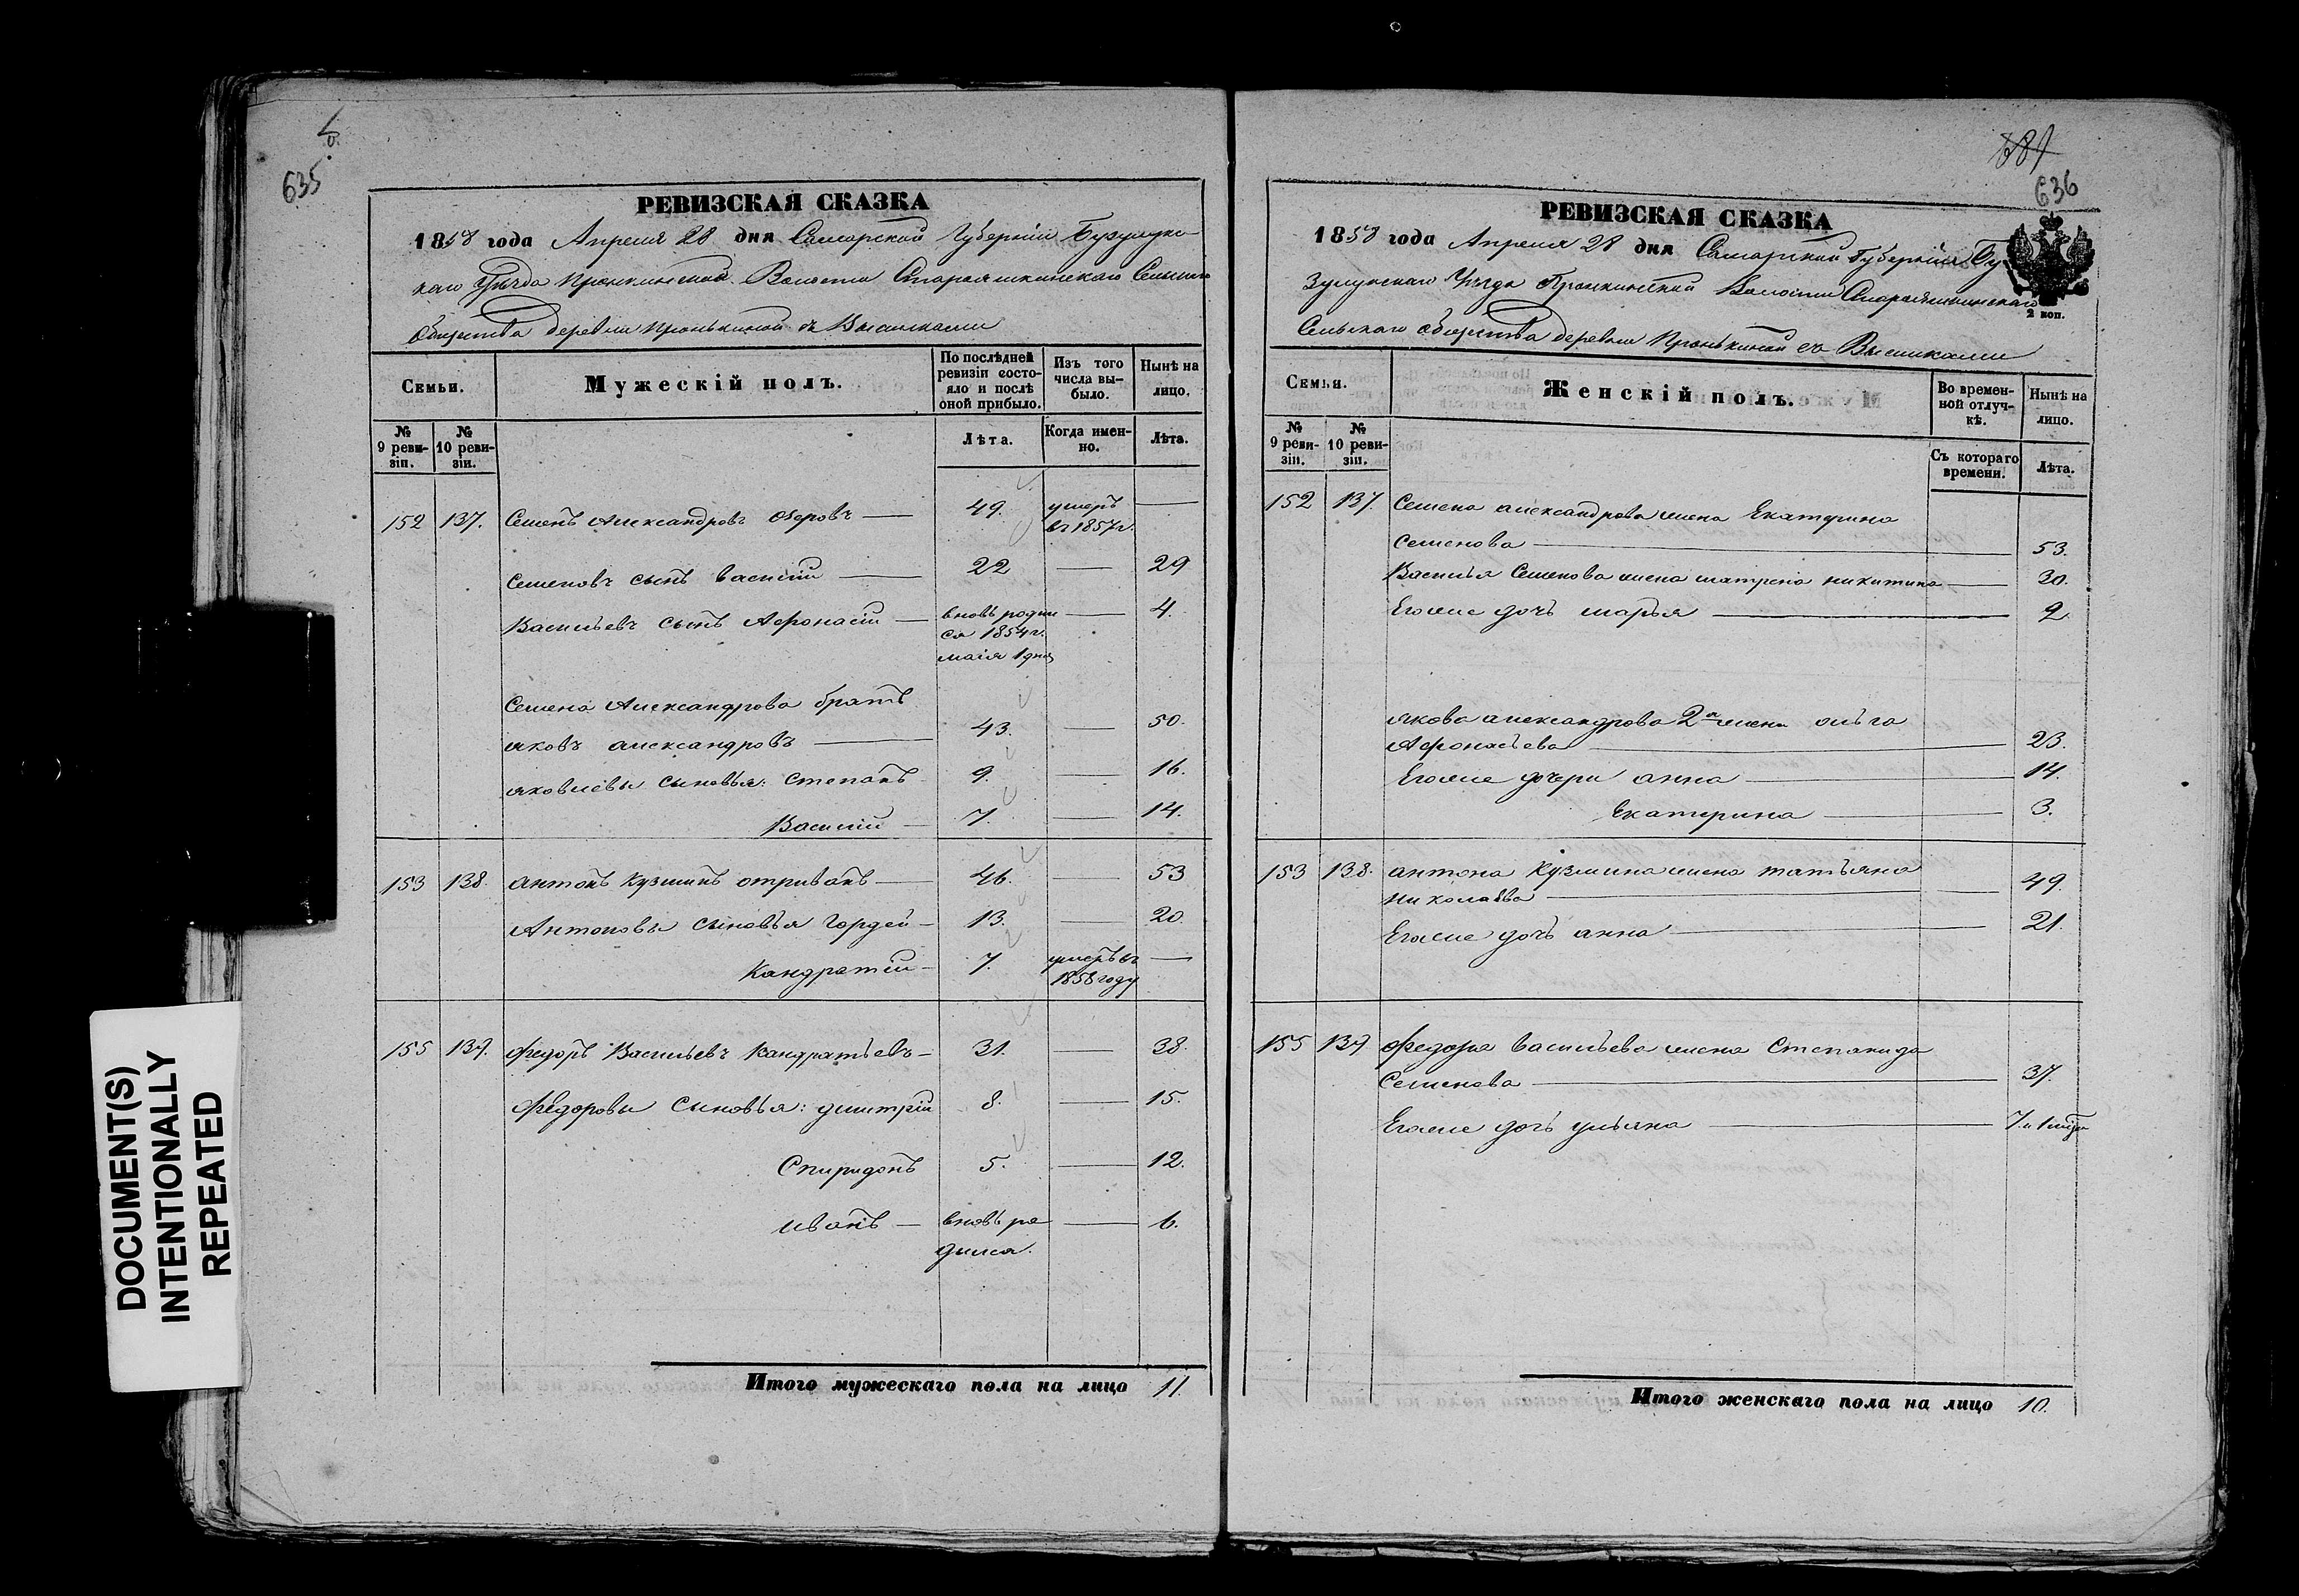 635
РЕВИЗСКАЯ СКАЗКА
1858 года Апреля 28 дня Самарской Губерніи Бузулукс
каго Уѣзда Пронкинской Волости Старояшкинскаго Сельскаго
Общества деревни Пронькиной съ Выселками
Семьи.
Мужескій полъ.
По послѣдней ревизіи состояло и послѣ оной прибыло.
Изъ того числа выбыло.
Нынѣ на лицо.
№ 9 ревизіи.
№ 10 ревизіи.
Лѣта.
Когда именно.
Лѣта.
152 137. Семенъ Александровъ 49. умеръ —
въ 1857 г.
Семеновъ сынъ Василій — 22 — 29
Васильевъ сынъ Афонасій — вновь родил — 4.
ся 1854 г.
маія 1 дня
Семена Александрова братъ
яковъ александровъ — 43. — 50.
яковлевы сыновья: Степанъ 9. — 16.
Василій — 7. — 14.
153 138. антонъ Кузминъ отриванъ — 46. — 53
Антоновы сыновья Гордей — 13. — 20.
Кандратій — 7. умеръ въ —
1858 году
155 139. Федоръ Васильевъ Кандратьевъ — 31. — 38.
Федоровы сыновья: дмитрій 8. — 15.
Спиридонъ 5. — 12.
иванъ — вновь ро — 6.
дился.
Итого мужескаго пола на лицо 11.
636
РЕВИЗСКАЯ СКАЗКА
1858 года Апреля 28 дня Самарской Губерніи Бу
зулукскаго Уѣзда Пронкинской Волости Старояшкинскаго
2 коп.
Сельскаго общества деревни Пронькиной съ Выселками
Семьи.
Женскій полъ.
Во временной отлучкѣ.
Нынѣ на лицо.
№ 9 ревизіи.
№ 10 ревизіи.
Съ котораго времени.
Лѣта.
152 137. Семена александрова жена Екатерина
Семенова — 53.
Василья Семенова жена матрена никитина — 30.
Егоже дочь марья — 2.
якова александрова 2я жена ольга
Афонасьева — 23.
Егоже дочери анна — 14.
Екатерина — 3.
153 138. антона Кузмина жена татьяна
николаева — 49.
Егоже дочь анна — 21.
155 139 Федора Васильева жена Степанида
Семенова — 37.
Егоже дочь ульяна — 7.
Итого женскаго пола на лицо 10.
DOCUMENT(S)
INTENTIONALLY
REPEATED